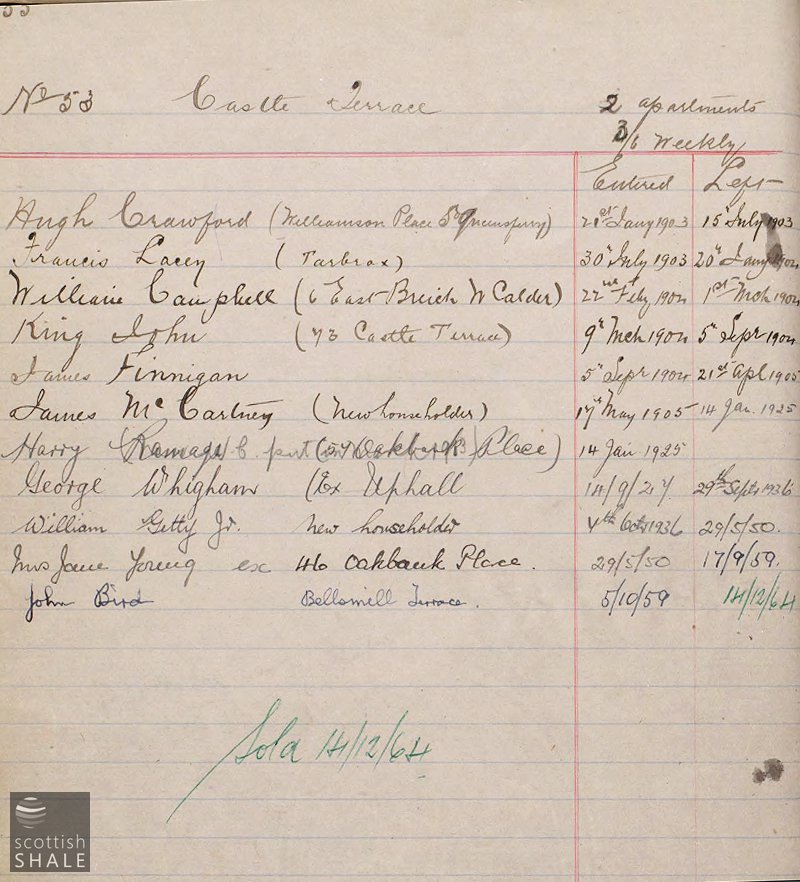 53
No 53 Castle Terrace 2 apartments
3/6 Weekly
Entered Left
Hugh Crawford (Williamson Place So Queensferry) 21st Jany 1903 15th July 1903
Francis Lacey (Tarbrax) 30th July 1903 20th Jany 1904
William Campbell (6 East Breich W Calder) 22nd Feby 1904 1st Mch 1904
King John (73 Castle Terrace) 9th Mch 1904 5th Sepr 1904
James Finnigan 5th Sepr 1904 21st Apl 1905
James McCartney (New householder) 17th May 1905 14 Jan. 1925
Harry Ramage (51 Oakbank Place) 14 Jan 1925
George Whigham (Ex Uphall 14/9/27 29th Septr 1936
William Getty Jr. New householder 4th Octr 1936 29/5/50.
Mrs Jane Young ex 46 Oakbank Place. 29/5/50 17/9/59.
John Bird Bellsmill Terrace. 5/10/59 14/12/64
Sold 14/12/64
scottish
SHALE